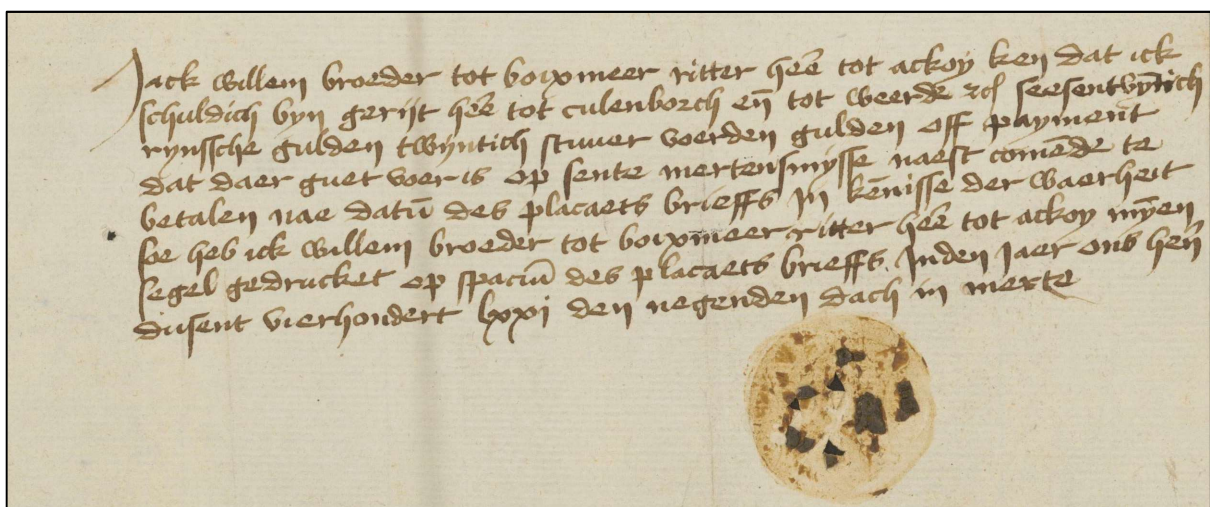 Jack willem broeder tot boixmeer ritter hēe tot ackoy ken dat ick
schuldich byn gerijt hēe tot culenborch en̄ tot weerde seesentvȳtich
rynssche gulden twyntich stuver voerden gulden off payment
dat daer guet voer is op sente mertensmysse naest comēde te
betalen nae datū des placaets brieffs In kēnisse der waerheit
soe heb ick willem broeder tot boixmeer ritter hēe tot ackoy mȳen
segel gedrucket op spaciū des placaets brieffs. Inden Jaer ons hern̄
dusent vierhondert lxxi den negenden dach in merte